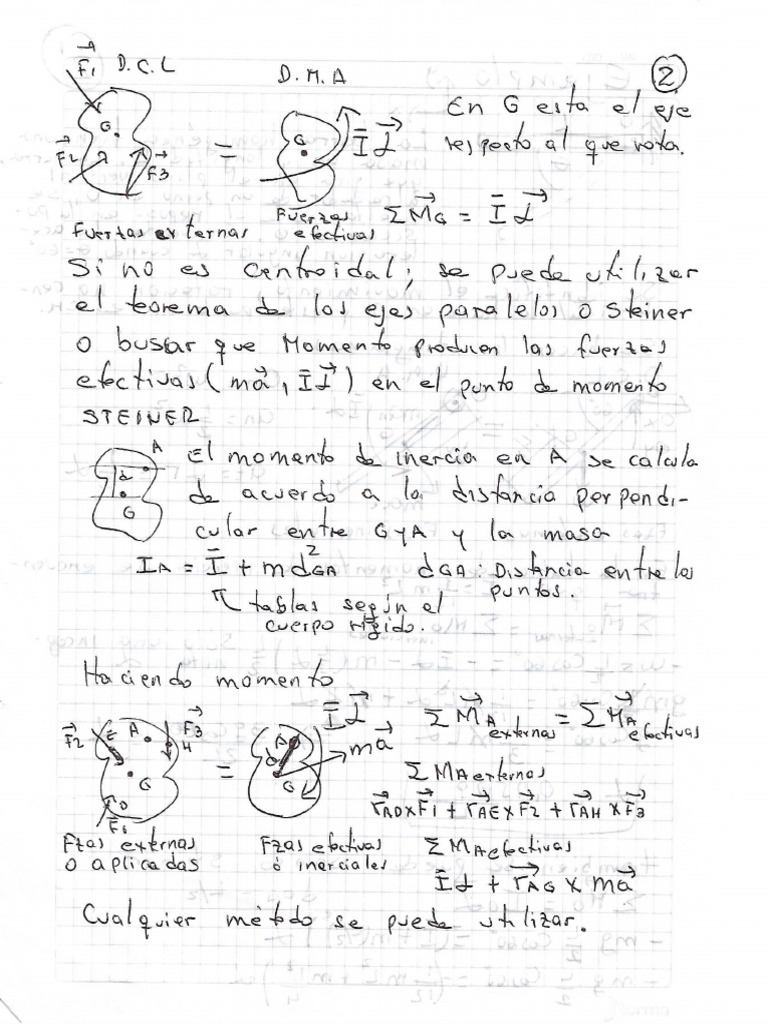 F1 D.C.L D.M.A 2
En G esta el eje
respecto al que rota.
G G = Īα
F2 F3
ΣMG = Īα
Fuerzas externas Fuerzas efectivas
Si no es centroidal, se puede utilizar
el teorema de los ejes paralelos o Steiner
o buscar que Momento producen las fuerzas
efectivas (ma, Īα) en el punto de momento
STEINER
A d G
El momento de inercia en A se calcula
de acuerdo a la distancia perpendi-
cular entre G y A y la masa
IA = Ī + md²GA dGA: Distancia entre los
puntos.
tablas según el
cuerpo rígido.
Haciendo momento
F2 E A F3 H G D F1 = A d G Īα ma
ΣMA externas = ΣMA efectivas
ΣMA externas
rAD x F1 + rAE x F2 + rAH x F3
Fzas externas Fzas efectivas ΣMA efectivas
o aplicadas ó inerciales
Īα + rAG x ma
Cualquier método se puede utilizar.